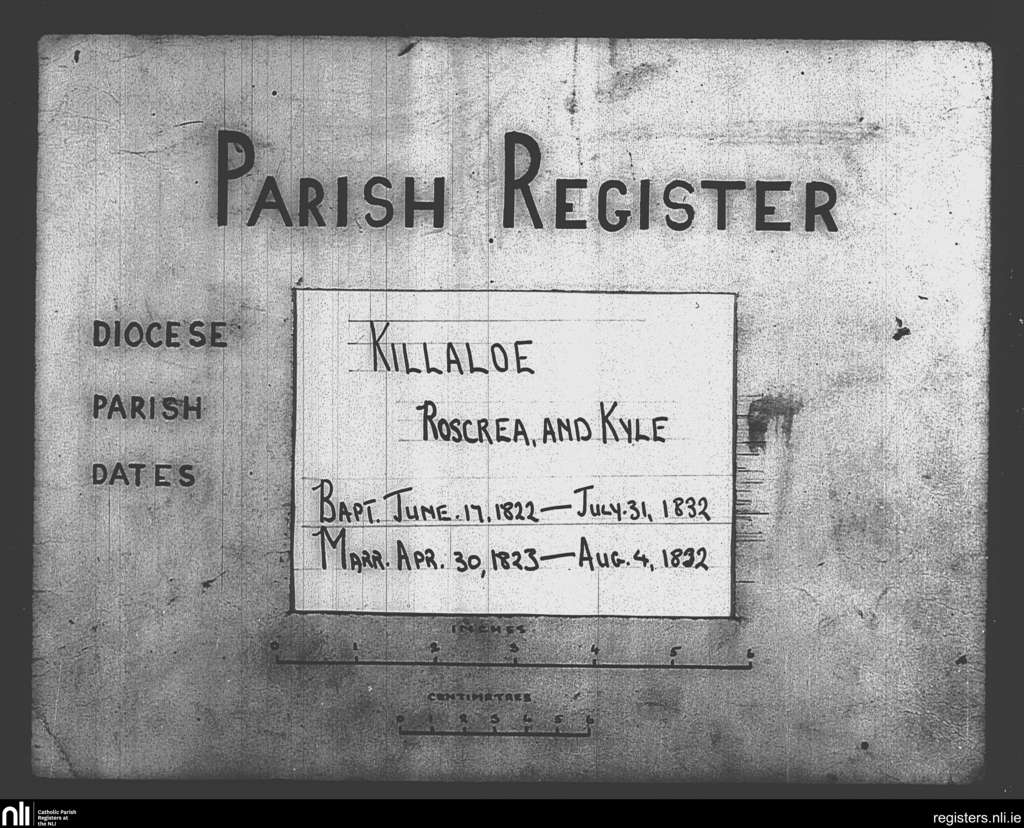 PARISH REGISTER
DIOCESE KILLALOE
PARISH ROSCREA, AND KYLE
DATES
BAPT. JUNE. 17, 1822 — JULY. 31, 1832
MARR. APR. 30, 1823 — AUG. 4, 1832
INCHES
0 1 2 3 4 5 6
CENTIMETRES
0 1 2 3 4 5 6
nli Catholic Parish
Registers at
the NLI
registers.nli.ie